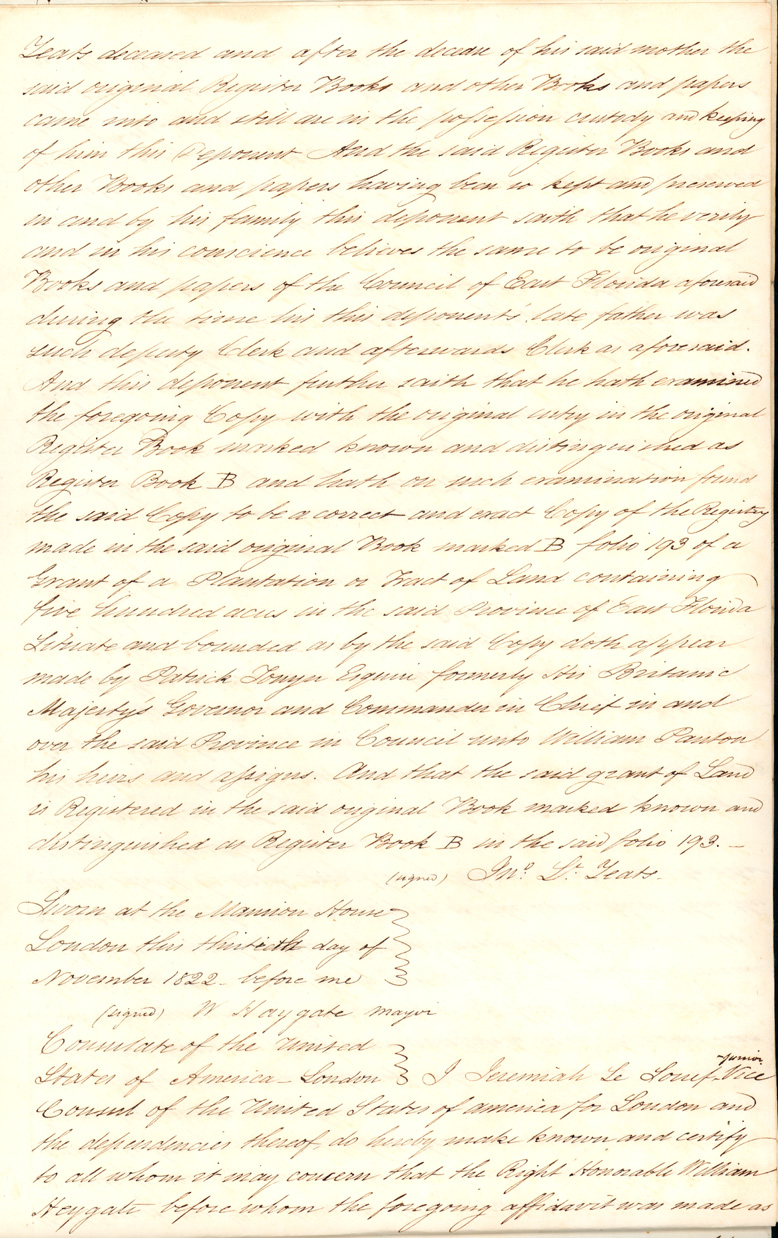 Yeats deceased and after the decease of his said mother the
said original Register Books and other Books and papers
came into and still are in the possession custody and keeping
of him this Deponent And the said Register Books and
other Books and papers having been so kept and preserved
in and by his family this deponent saith that he verily
and in his conscience believes the same to be original
Books and papers of the Council of East Florida aforesaid
during the time his this deponents' late father was
such deputy Clerk and afterwards Clerk as aforesaid.
And this deponent further saith that he hath examined
the foregoing Copy with the original entry in the original
Register Book marked known and distinguished as
Register Book B and hath on such examination found
the said Copy to be a correct and exact Copy of the Registry
made in the said original Book marked B folio 193 of a
Grant of a Plantation or Tract of Land containing
five hundred acres in the said Province of East Florida
Situate and bounded as by the said Copy doth appear
made by Patrick Tonyn Esquire formerly His Britanic
Majesty's Governor and Commander in Chief in and
over the said Province in Council unto William Panton
his heirs and assigns. And that the said grant of Land
is Registered in the said original Book marked known and
distinguished as Register Book B in the said folio 193. —
(signed) Jno. St. Yeats.
Sworn at the Mansion House
London this thirtieth day of
November 1822 - before me
(signed) W Haygate mayor
Consulate of the United
States of America - London
junior
I Jeremiah Le Souef Vice
Consul of the United States of america for London and
the dependencies thereof do hereby make known and certify
to all whom it may concern that the Right Honorable William
Heygate before whom the foregoing affidavit was made as